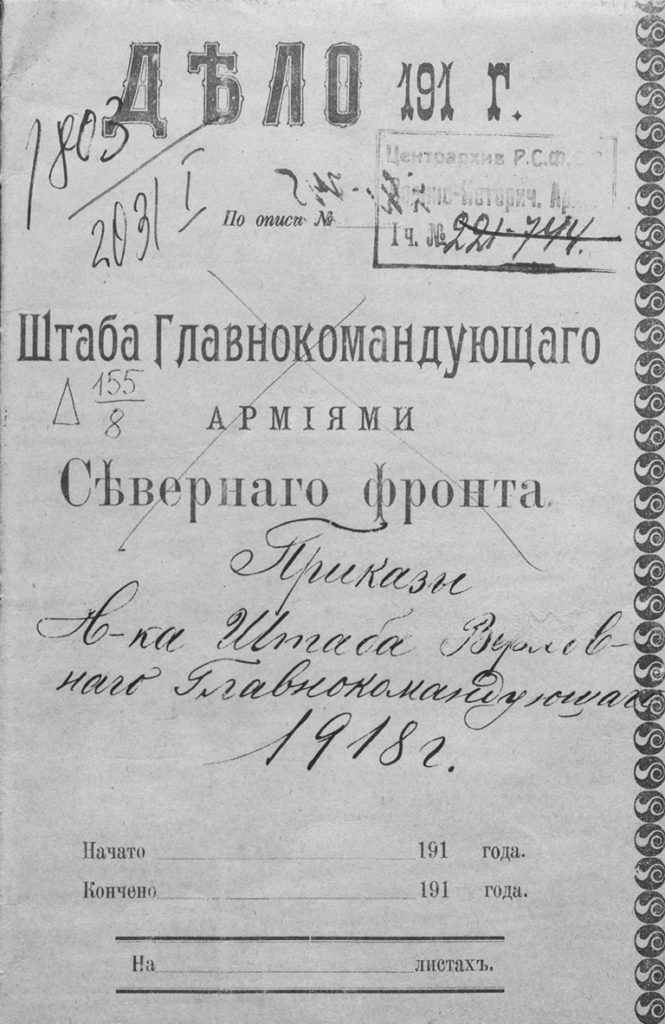 ДѢЛО 191 г.
1803
2031 I
Центрархив Р.С.Ф.С.Р.
Военно-Историч. Ар
I ч. № 221-744.
По описи №
Штаба Главнокомандующаго
155
Δ 8
АРМІЯМИ
Сѣвернаго фронта.
Приказы
Н-ка Штаба Верхов-
наго Главнокомандующаго
1918 г.
Начато 191 года.
Кончено 191 года.
На листахъ.